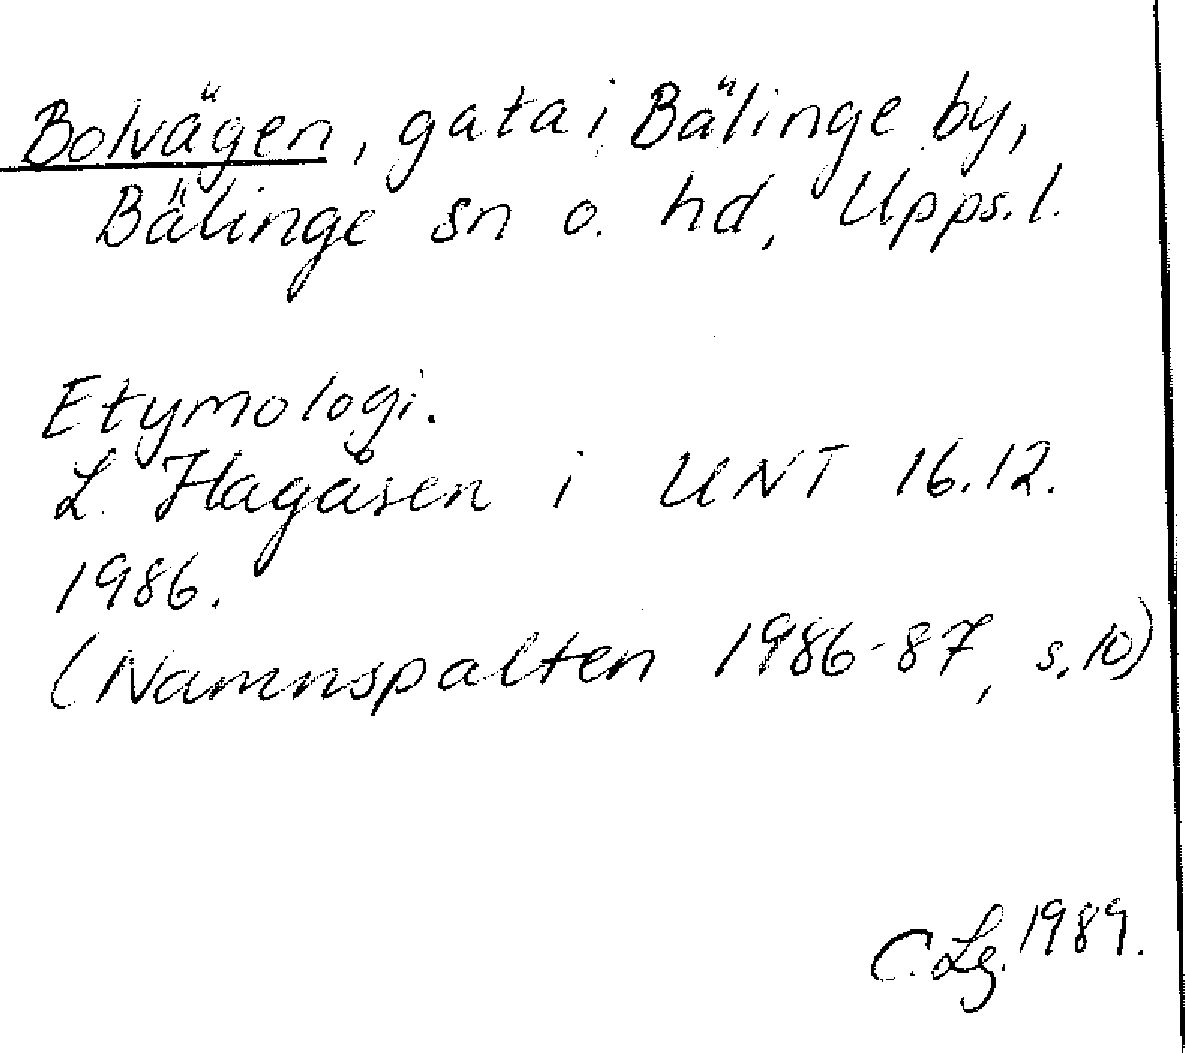 Bolvägen, gata i Bälinge by,
Bälinge sn o. hd, Upps.l.
Etymologi.
L. Hagåsen i UNT 16.12.
1986.
(Namnspalten 1986-87, s.10)
C. Lg. 1989.